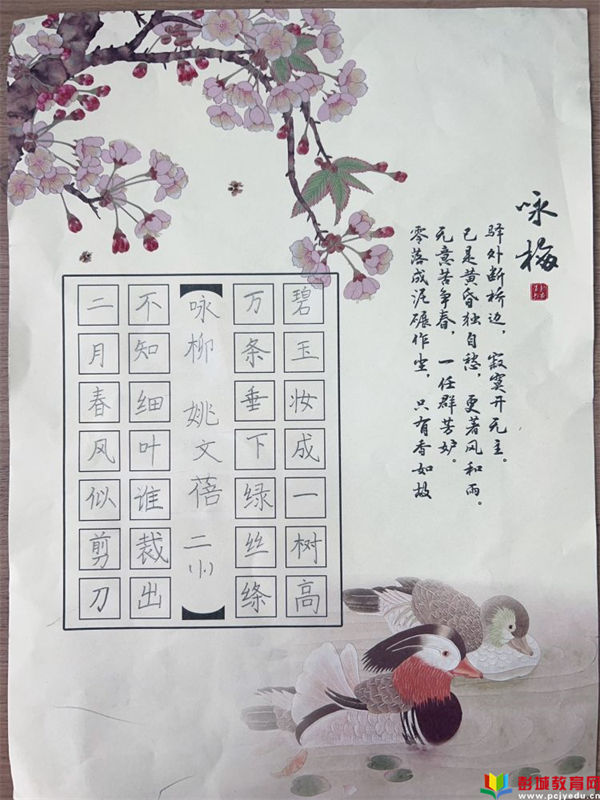 咏梅
驿外断桥边，寂寞开无主。
已是黄昏独自愁，更著风和雨。
无意苦争春，一任群芳妒。
零落成泥碾作尘，只有香如故
碧玉妆成一树高
万条垂下绿丝绦
咏柳 姚文蓓 二（1）
不知细叶谁裁出
二月春风似剪刀
彭城教育网
www.pcjyedu.cn